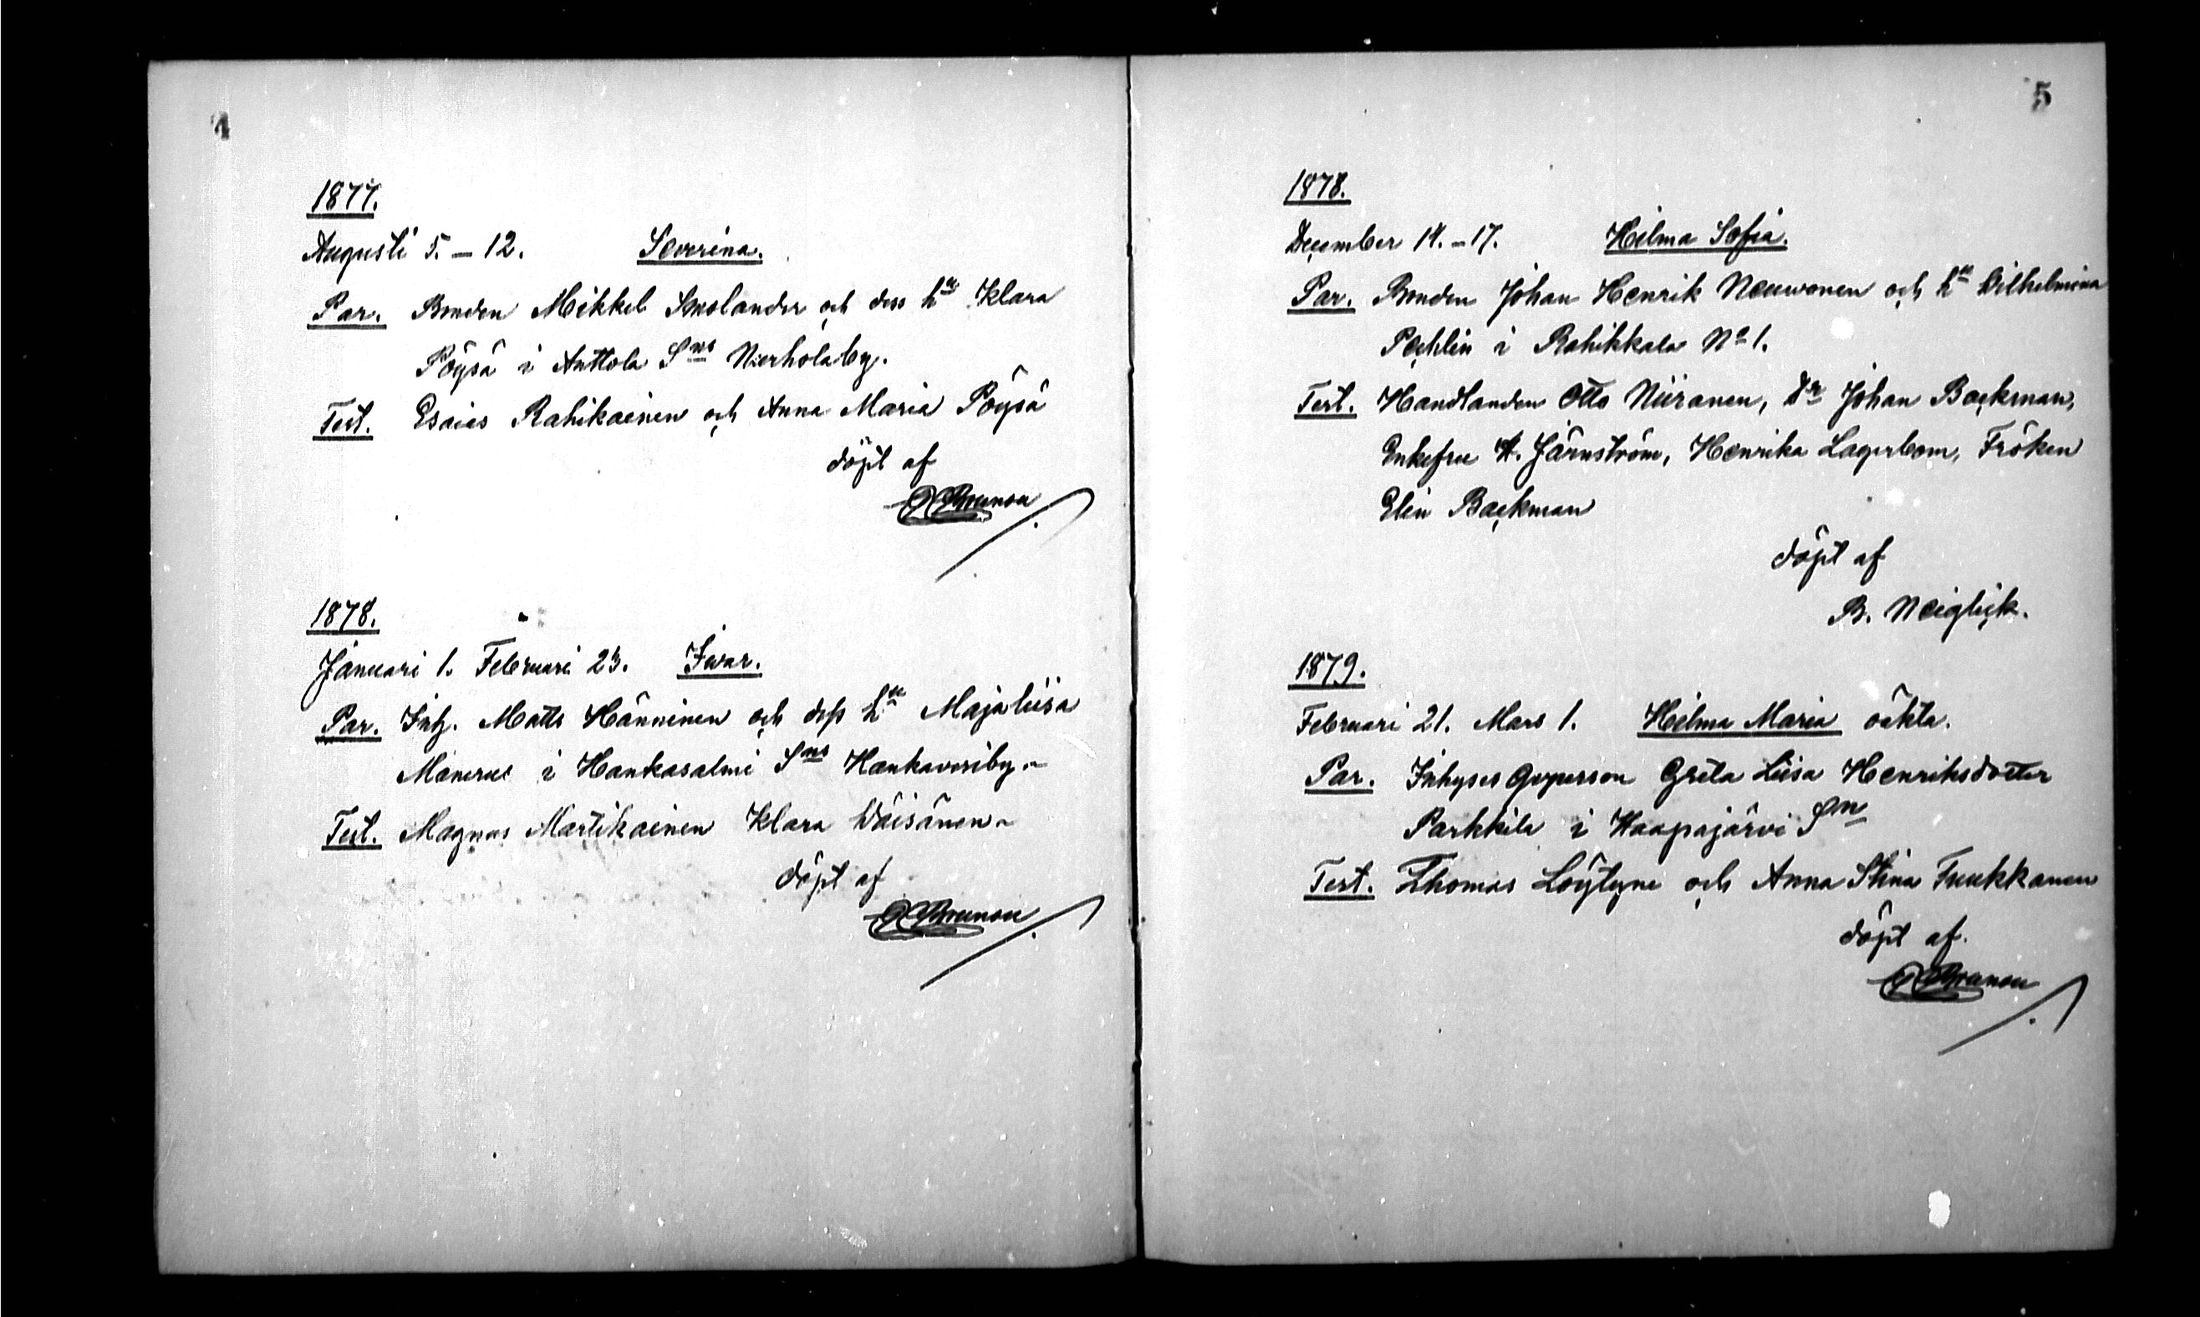 4
1877.
Augusti 5. – 12. Severina.
Par. Bonden Mikkel Smolander och dess hu Klara
Pöysä i Anttola Sns Nurholaby.
Test. Esaias Rahikainen och Anna Maria Pöysä
döpt af
Brunou
1878.
Januari 1. Februari 23. Iwar.
Par. Inh. Matts Hänninen och dess hu Maja Liisa
Manerus i Hankasalmi Sns Hankaveriby.
Test. Magnus Martikainen Klara Wäisänen
döpt af
Brunou
5
1878.
December 14. – 17. Hilma Sofia.
Par. Bonden Johan Henrik Neuwonen och hu Wilhelmina
Pechlin i Rahikkala No 1.
Test. Handlanden Otto Niiranen, Dr Johan Backman,
Enkefru A. Järnström, Henrika Lagerbom, Fröken
Elin Backman
döpt af
B. Neiglick.
1879.
Februari 21. Mars 1. Hilma Maria oäkta.
Par. Inhyses qvperson Greta Liisa Henriksdotter
Parkkila i Haapajärvi Sn
Test. Thomas Löytyne och Anna Stina Tuukkanen
döpt af.
Brunou